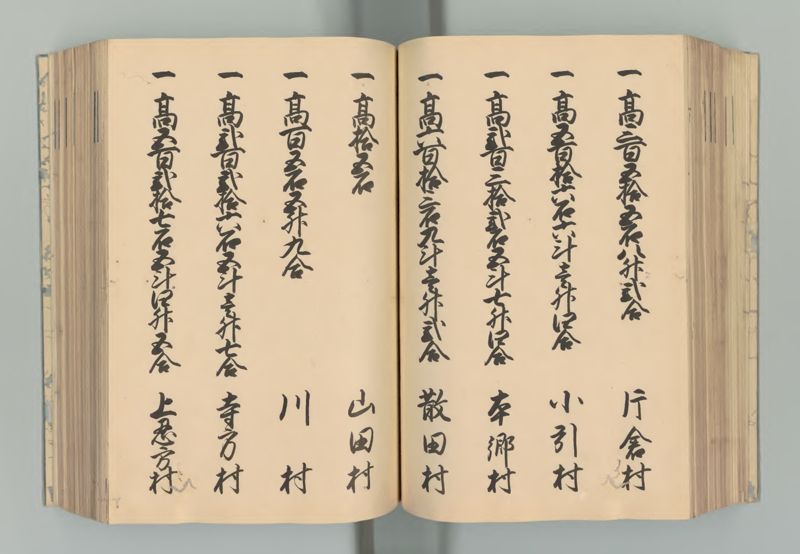 一高三百五拾五石八升弐合 片倉村
一高五百拾六石六斗壱升四合 小引村
一高弐百三拾弐石五斗七升四合 本郷村
一高六百拾三石九斗壱升弐合 散田村
一高拾五石 山田村
一高百五石五升九合 川村
一高弐百弐拾六石五斗壱升七合 寺方村
一高五百弐拾七石五斗四升五合 上恩方村